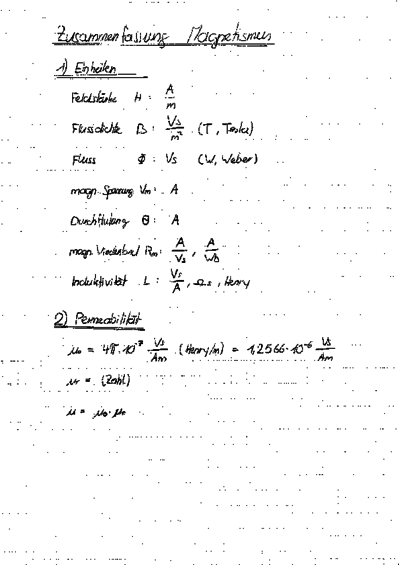 Zusammenfassung Magnetismus
1) Einheiten
Feldstärke H: A/m
Flussdichte B: Vs/m² (T, Tesla)
Fluss Φ: Vs (W, Weber)
magn. Spannung Vm: A
Durchflutung Θ: A
magn. Widerstand Rm: A/Vs, A/Wb
Induktivität L: Vs/A, Ωs, Henry
2) Permeabilität
μ₀ = 4π·10⁻⁷ Vs/Am (Henry/m) = 1,2566·10⁻⁶ Vs/Am
μr = (Zahl)
μ = μ₀·μr